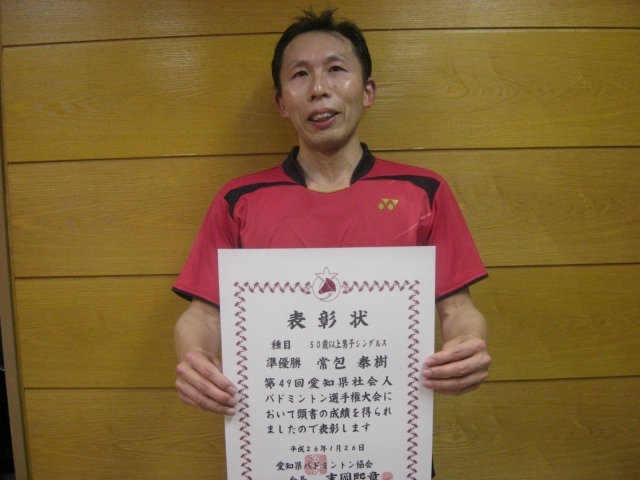 表彰状
種目 50歳以上男子シングルス
準優勝 常包 泰樹
第49回愛知県社会人
バドミントン選手権大会に
おいて頭書の成績を得られ
ましたので表彰します
平成26年1月26日
愛知県バドミントン協会